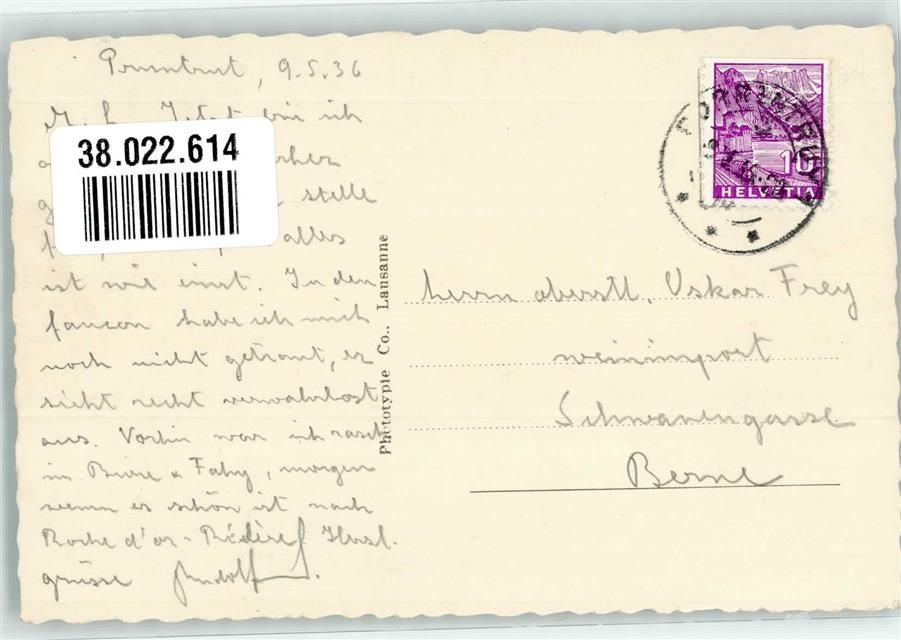 Pruntrut, 9.5.36
M. L. Jetzt bin ich
stelle
alles
ist wie einst. In den
faucon habe ich mich
noch nicht getraut, er
sieht recht verwahrlost
aus. Vorhin war ich rasch
in Bure & Fahy, morgen
wenn es schön ist nach
Roche d'or - Réclère. Herzl.
grüsse Rudolf.
38.022.614
Phototypie Co., Lausanne
PORRENTRUY
10
HELVETIA
Herrn oberstl. Oskar Frey
weinimport
Schwanengasse
Berne